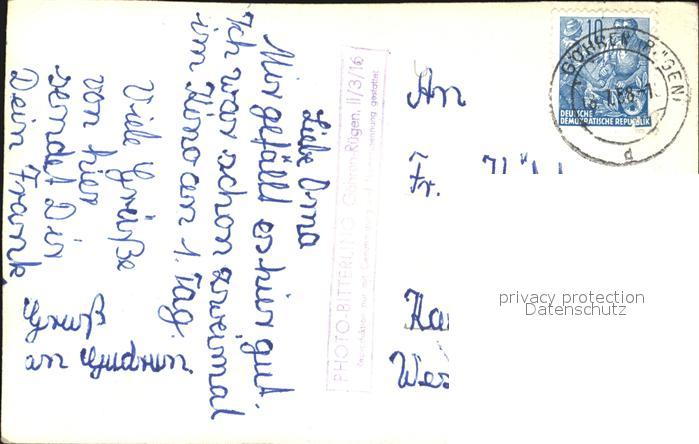 Liebe Oma
Mir gefällt es hier gut.
Ich war schon zweimal
im Kino am 1. Tag.
Viele Grüße
von hier
sendet Dir
Dein Frank
Gruß
an Gudrun
PHOTO-BITTERLING Göhren-Rügen, II/3/16
An
Fr.
Ka
Wes
10
DEUTSCHE
DEMOKRATISCHE REPUBLIK
GÖHREN (RÜGEN)
d
privacy protection
Datenschutz